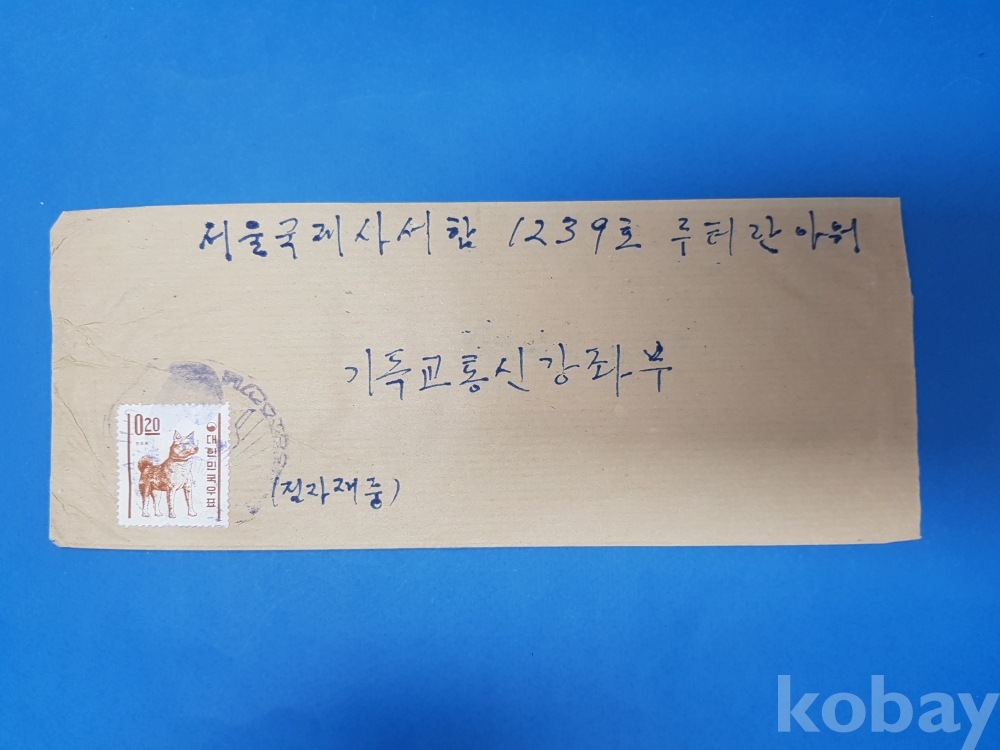 서울국제사서함 1239호 루터란아워
기독교통신강좌부
0.20
대한민국우표
(점자재중)
kobay